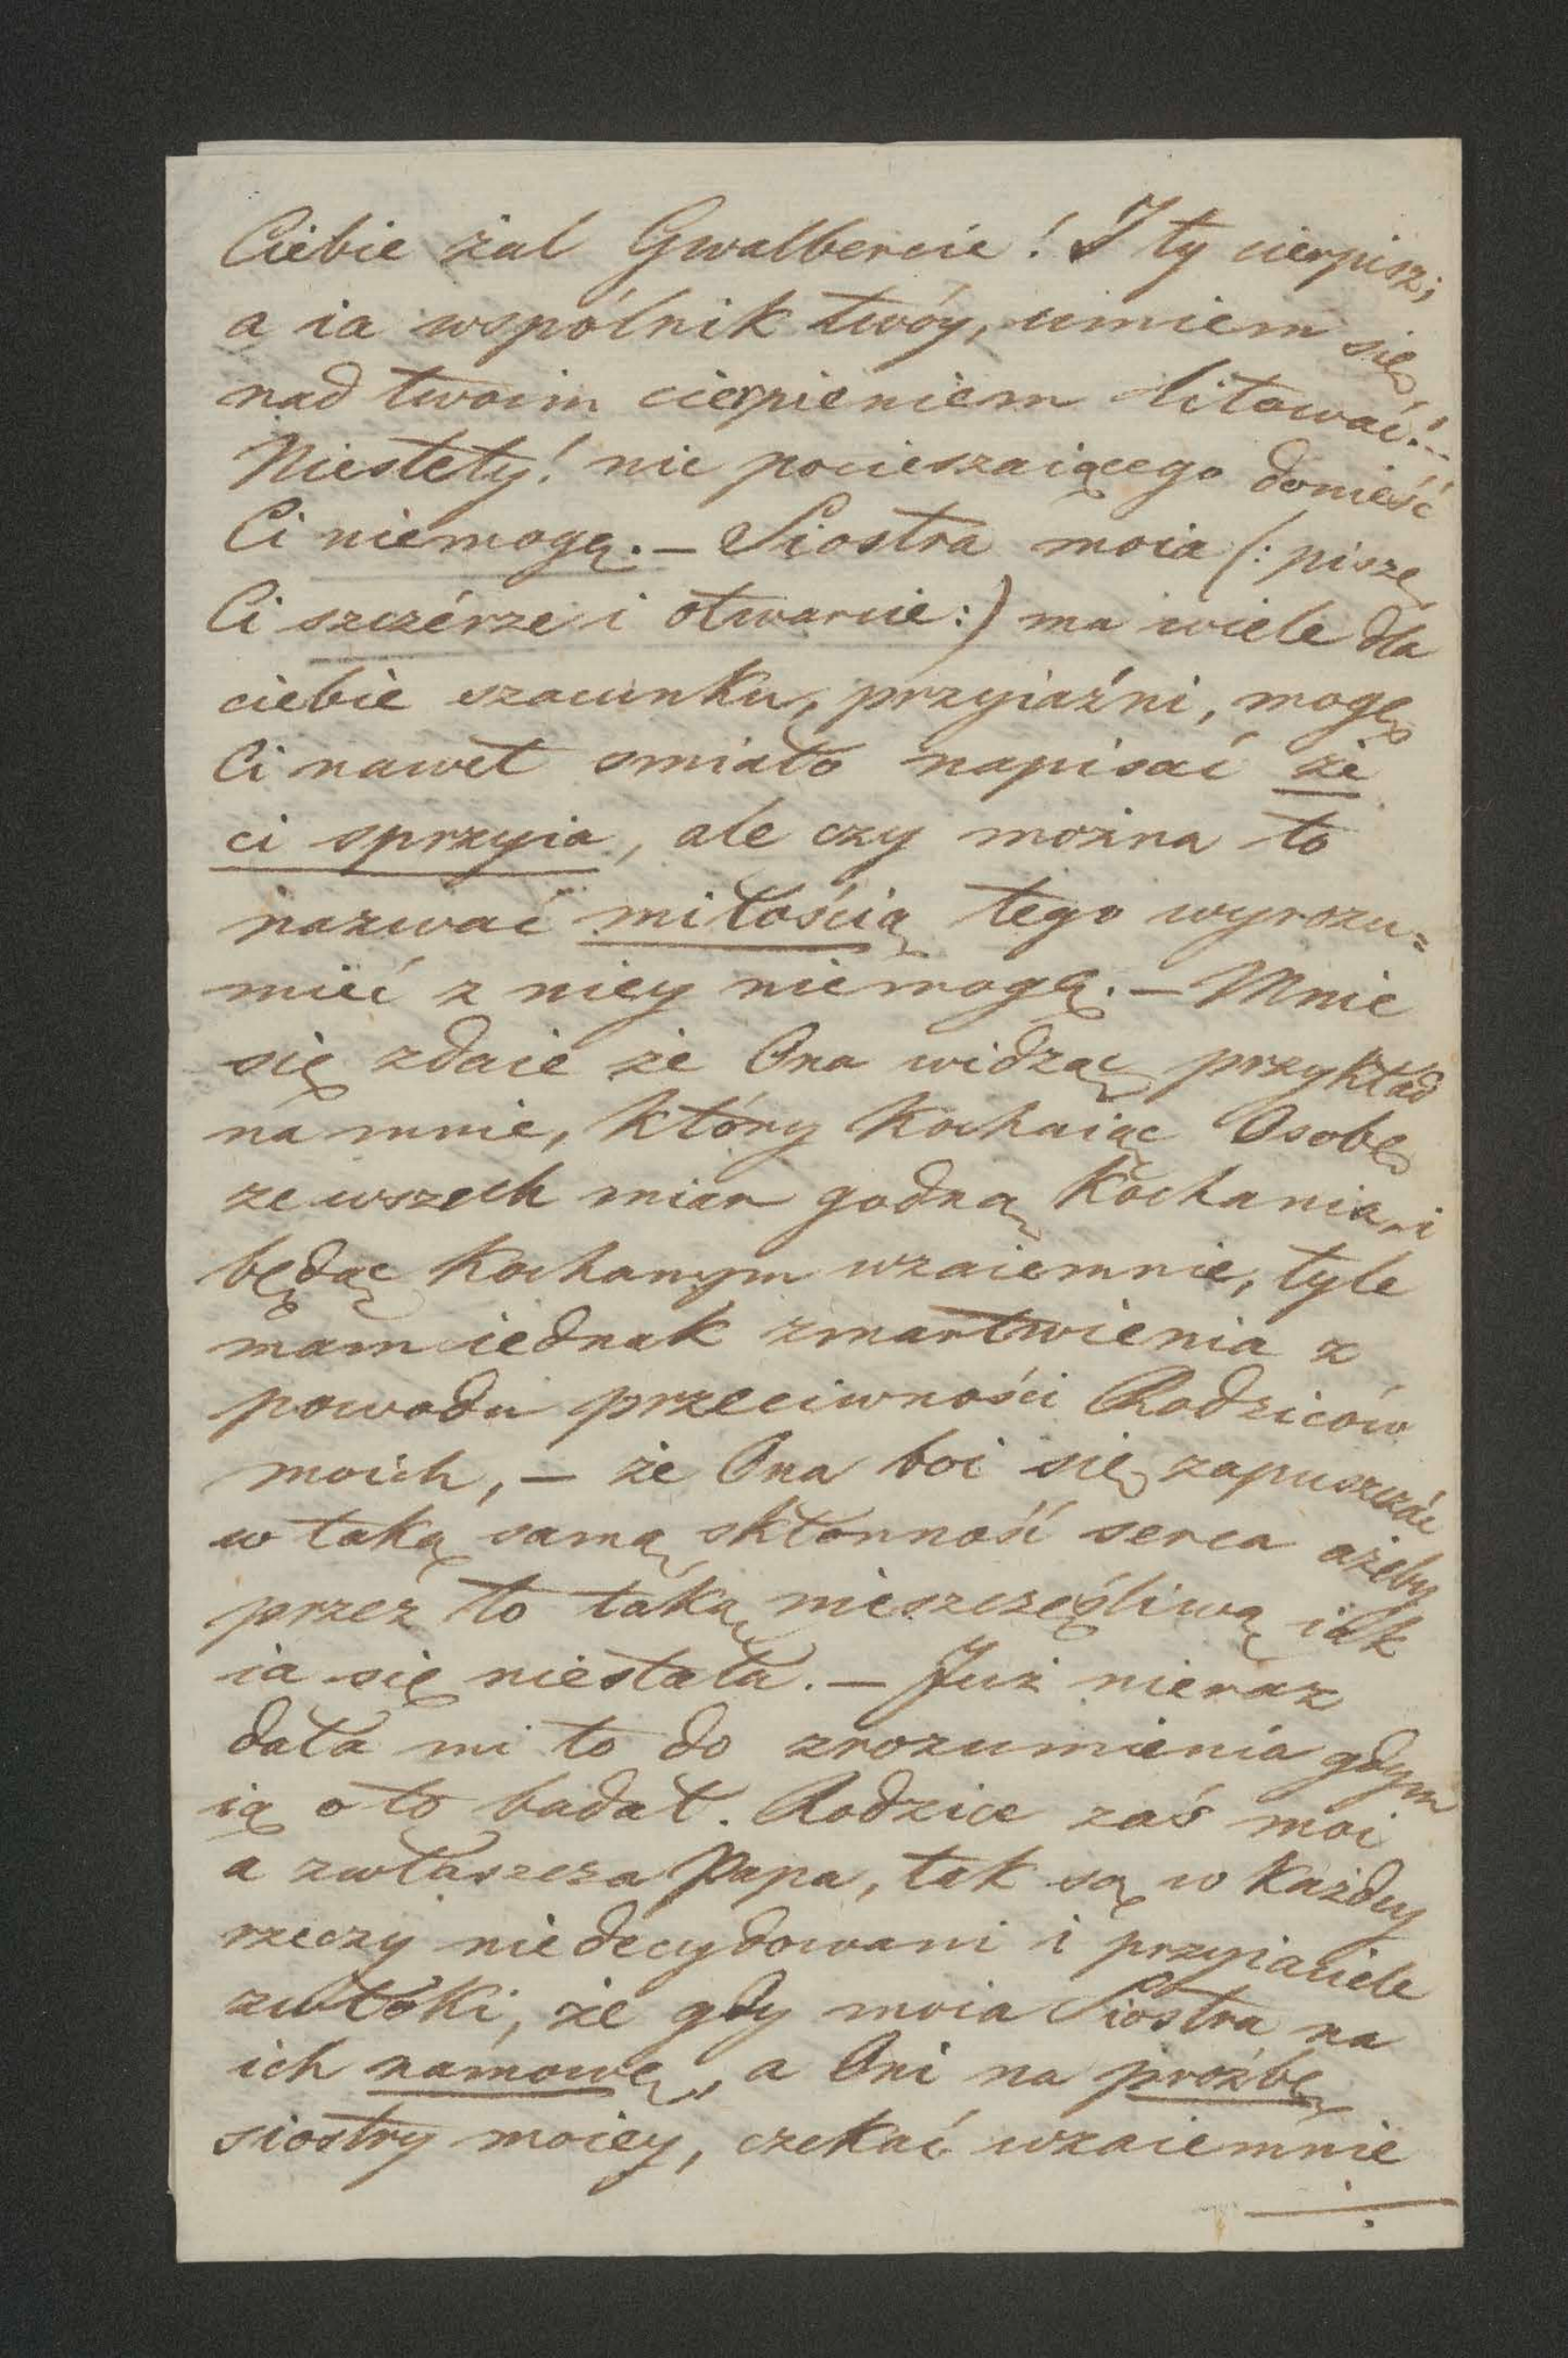 Ciebie żal Gwalbercie! I ty cierpisz,
a ia wspólnik twóy, umiem się
nad twoim cierpieniem litować!–
Niestety! nic pocieszaiącego donieść
Ci niemogę. – Siostra moia (: piszę
Ci szczérze i otwarcie :) ma wiele dla
ciebie szacunku, przyiaźni, mogę
Ci nawet smiało napisać że
ci sprzyia, ale czy można to
nazwać miłością tego wyrozu=
mieć z niey niemogę. – Mnie
się zdaie że Ona widząc przykład
na mnie, który kochaiąc Osobę
ze wszech miar godną kochania, i
będąc kochanym wzaiemnie, tyle
mam iednak zmartwienia z
powodu przeciwności Rodziców
moich, – że Ona boi się zapuszczać
w taką samą skłonność serca ażeby
przez to taką nieszczęśliwą iak
ia się niestała. – Już nieraz
dała mi to do zrozumienia gdym
ią o to badał. Rodzice zaś moi
a zwłaszcza Papa, tak są w każdey
rzeczy niedecydowani i przyiaciele
zwłóki, że gdy moia Siostra na
ich namowę, a Oni na prożbę
siostry moiey, czekać wzaiemnie